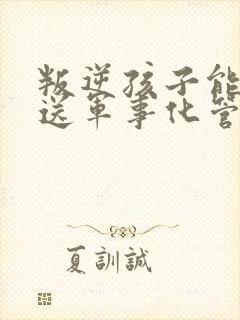 叛逆孩子能
送军事化管
夏訓誠